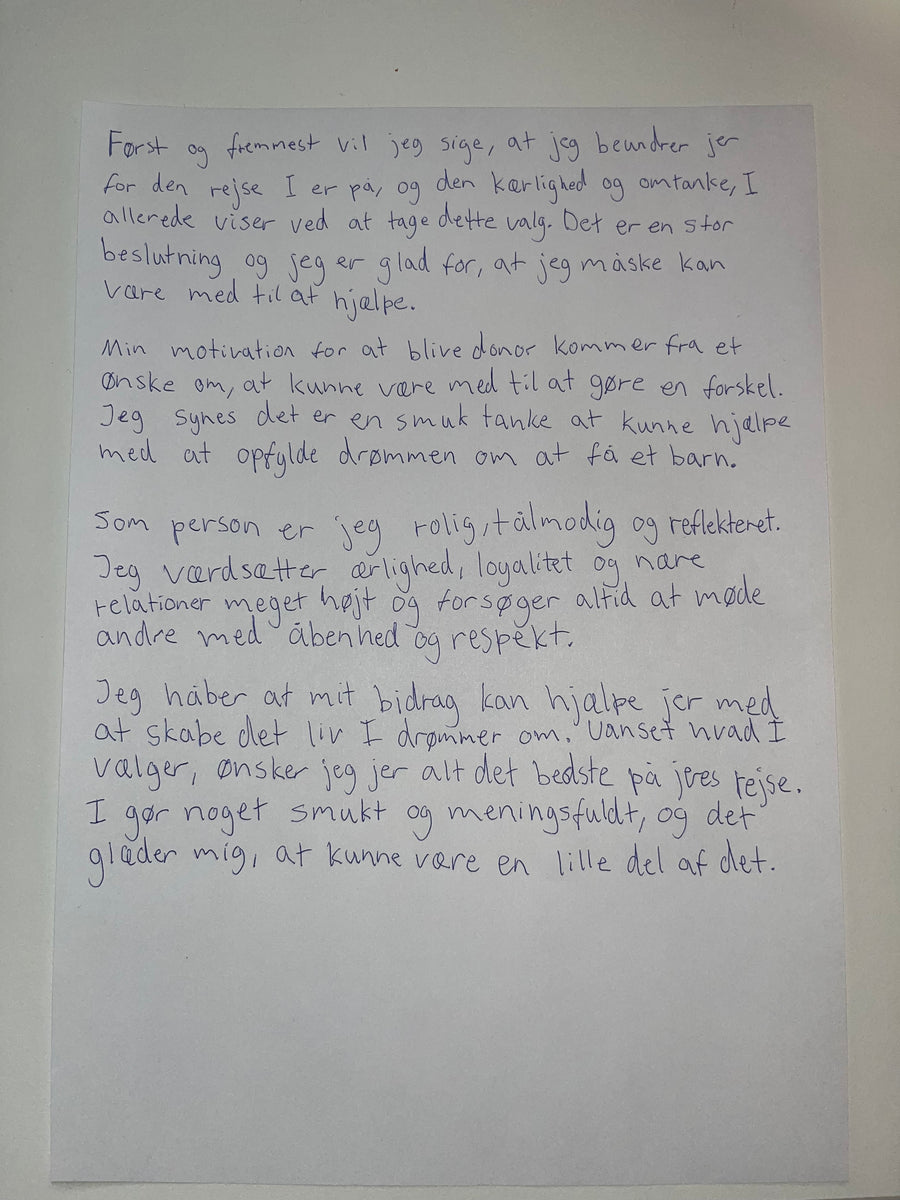 Først og fremmest vil jeg sige, at jeg beundrer jer
for den rejse I er på, og den kærlighed og omtanke, I
allerede viser ved at tage dette valg. Det er en stor
beslutning og jeg er glad for, at jeg måske kan
være med til at hjælpe.
Min motivation for at blive donor kommer fra et
ønske om, at kunne være med til at gøre en forskel.
Jeg synes det er en smuk tanke at kunne hjælpe
med at opfylde drømmen om at få et barn.
Som person er jeg rolig, tålmodig og reflekteret.
Jeg værdsætter ærlighed, loyalitet og nære
relationer meget højt og forsøger altid at møde
andre med åbenhed og respekt.
Jeg håber at mit bidrag kan hjælpe jer med
at skabe det liv I drømmer om. Uanset hvad I
vælger, ønsker jeg jer alt det bedste på jeres rejse.
I gør noget smukt og meningsfuldt, og det
glæder mig, at kunne være en lille del af det.